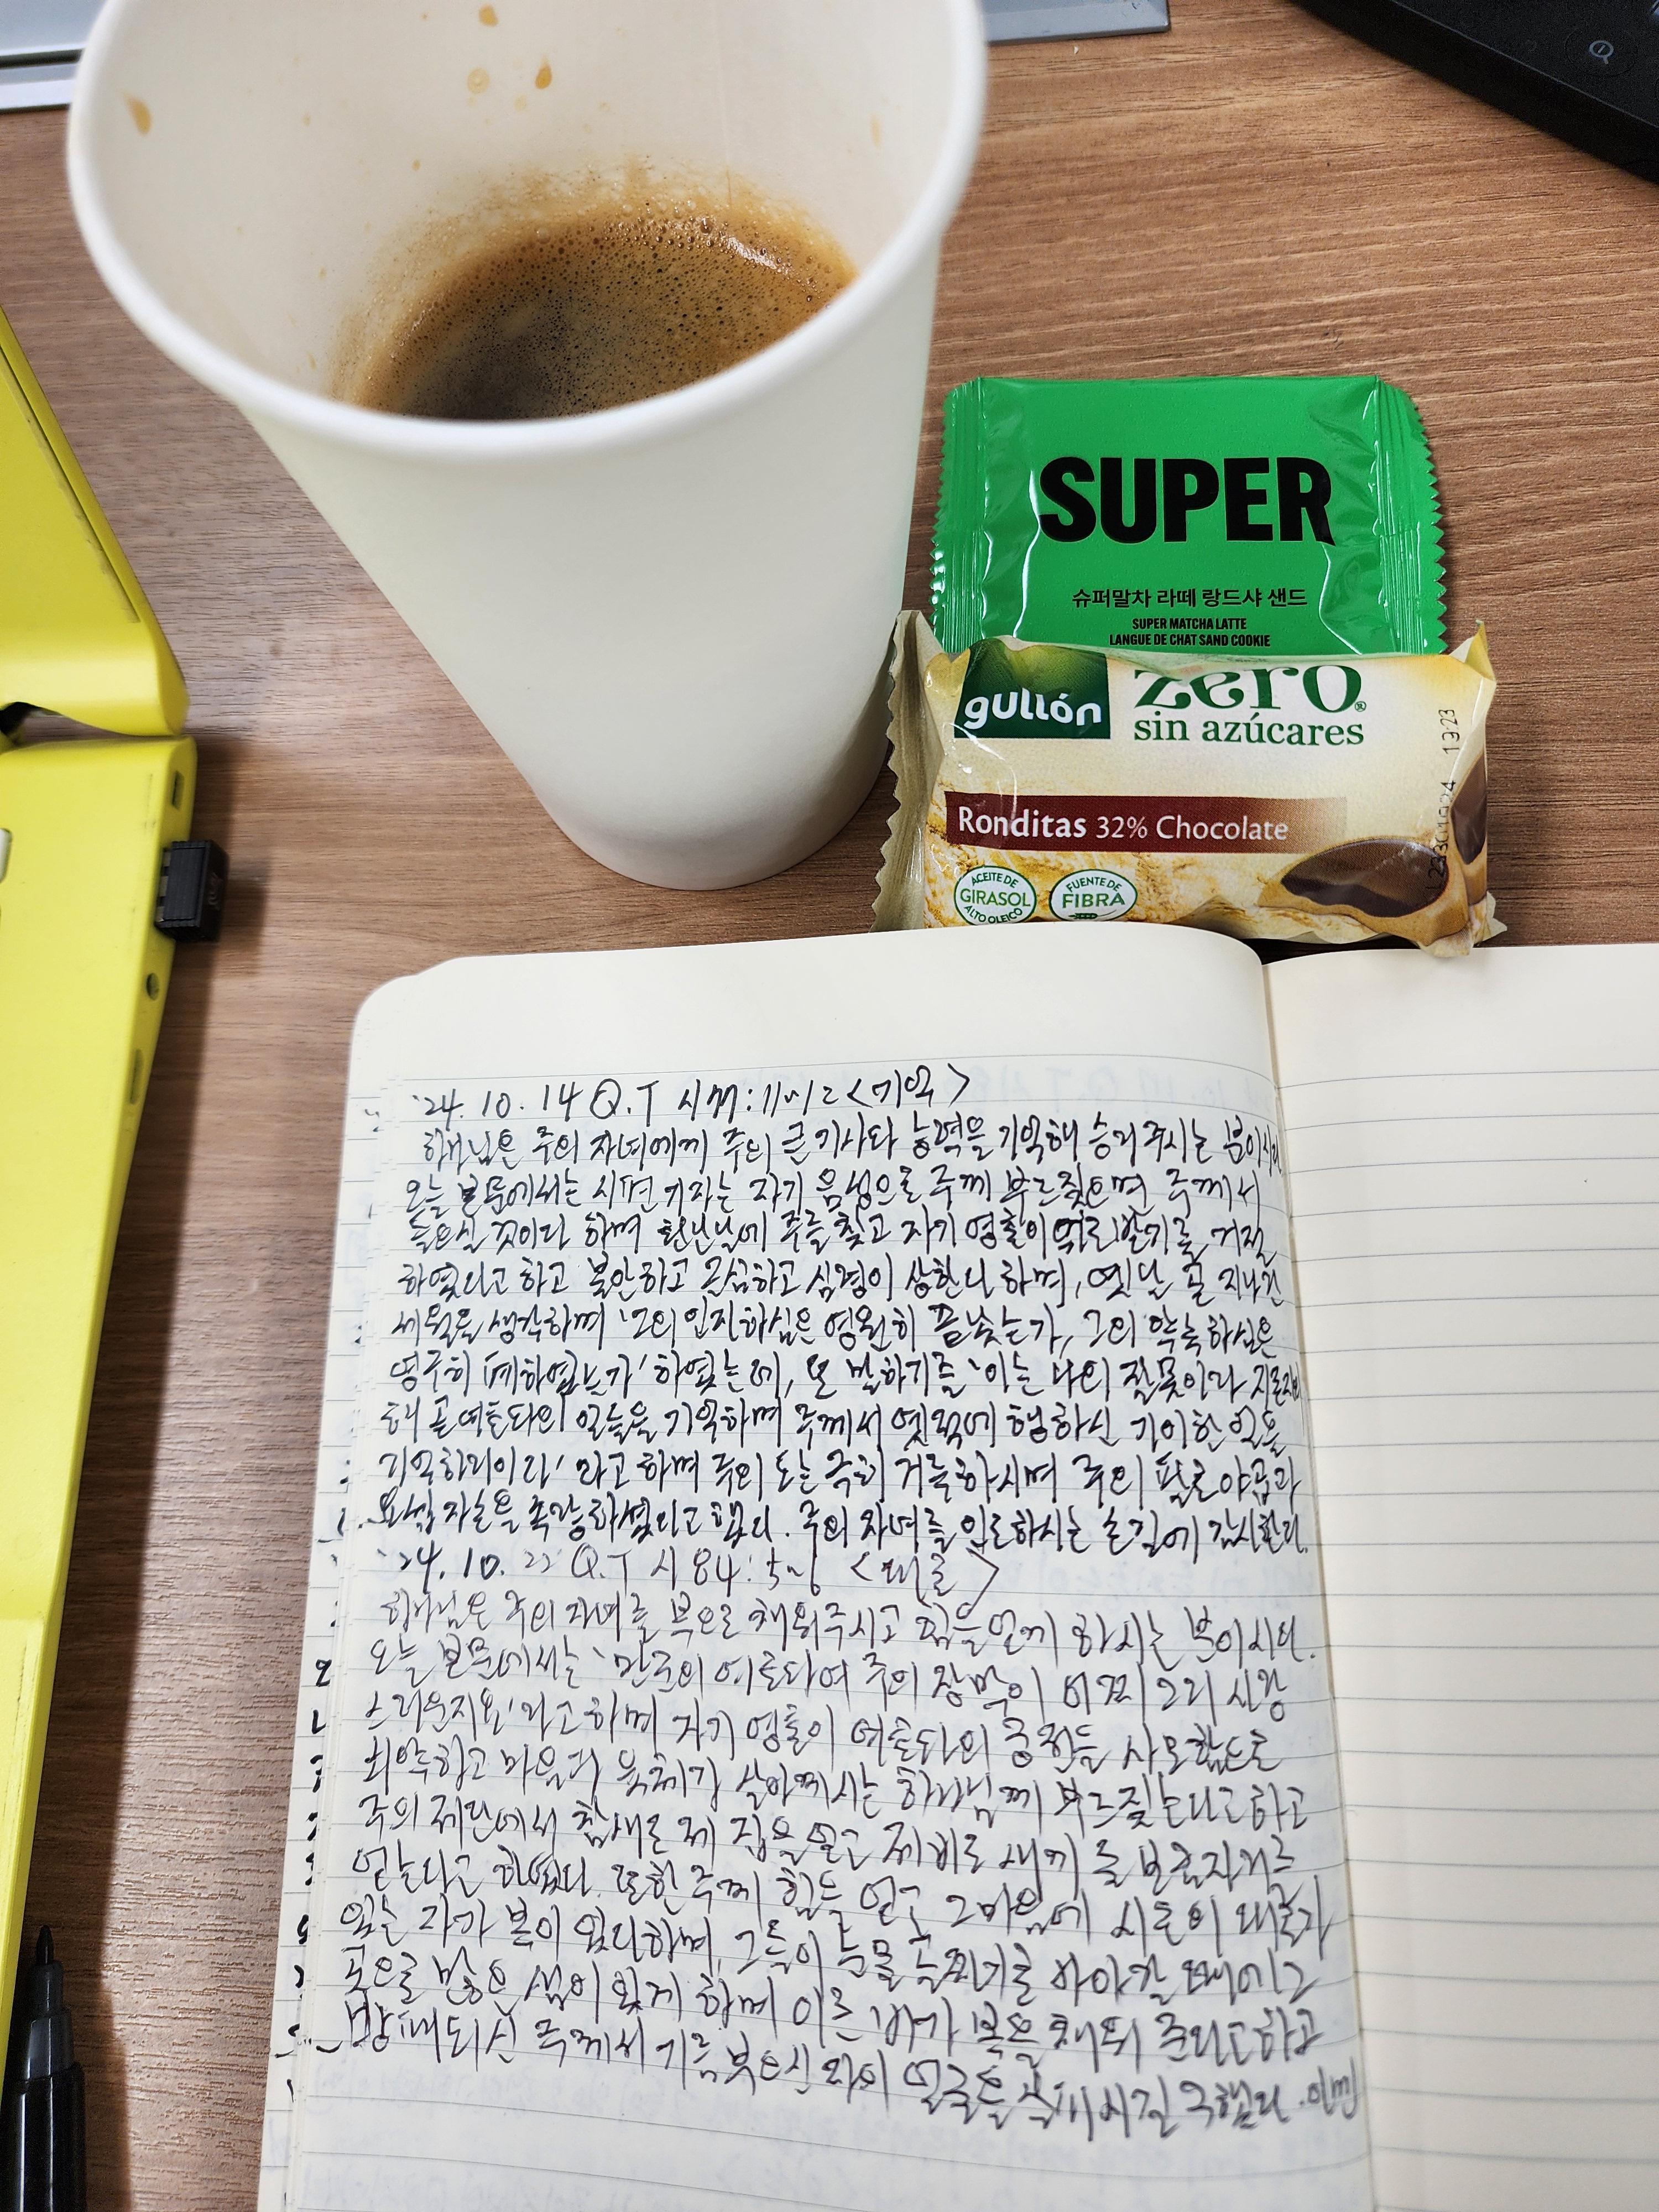 SUPER
슈퍼말차 라떼 랑드샤 샌드
SUPER MATCHA LATTE
LANGUE DE CHAT SAND COOKIE
gullón
zero®
sin azúcares
13:23
Ronditas 32% Chocolate
ACEITE DE
GIRASOL
ALTO OLEICO
FUENTE DE
FIBRA
'24. 10. 14 Q.T 시77:11~12 <기억>
하나님은 주의 자녀에게 주의 큰 기사와 능력을 기억해 승리 주시는 분이시다
오늘 본문에서는 시편 기자는 자기 음성으로 주께 부르짖으며 주께서
들으실 것이라 하며 환난날에 주를 찾고 자기 영혼이 위로받기를 거절
하였다고 하고 불안하고 근심하고 심령이 상한다 하며, 옛날 곧 지나간
세월을 생각하며 '그의 인자하심은 영원히 끝났는가, 그의 약속하심은
영구히 폐하였는가' 하였는데, 또 말하기를 '이는 나의 잘못이라 지존자의
해 곧 여호와의 일들을 기억하며 주께서 옛적에 행하신 기이한 일을
기억하리이다' 라고 하며 주의 도는 극히 거룩하시며 주의 팔로 야곱과
요셉 자손을 속량하셨다고 했다. 주의 자녀를 인도하시는 손길에 감사한다.
'24. 10. 22 Q.T 시84: <대로>
하나님은 주의 자녀를 복으로 채워주시고 힘을 얻게 하시는 분이시다.
오늘 본문에서는 '만군의 여호와여 주의 장막이 어찌 그리 사랑
스러운지요' 라고 하며 자기 영혼이 여호와의 궁정을 사모함으로
쇠약하고 마음과 육체가 살아계시는 하나님께 부르짖는다고 하고
주의 제단에서 참새도 제 집을 얻고 제비도 새끼 둘 보금자리를
얻는다고 하였다. 또한 주께 힘을 얻고 그 마음에 시온의 대로가
있는 자가 복이 있다하며, 그들이 눈물 골짜기를 지나갈 때에 그
곳으로 많은 샘이 있게 하며 이른 비가 복을 채워 준다고 하고
방패되신 주께서 기름 부으신 자의 얼굴을 살펴 보시길 구했다. 아멘